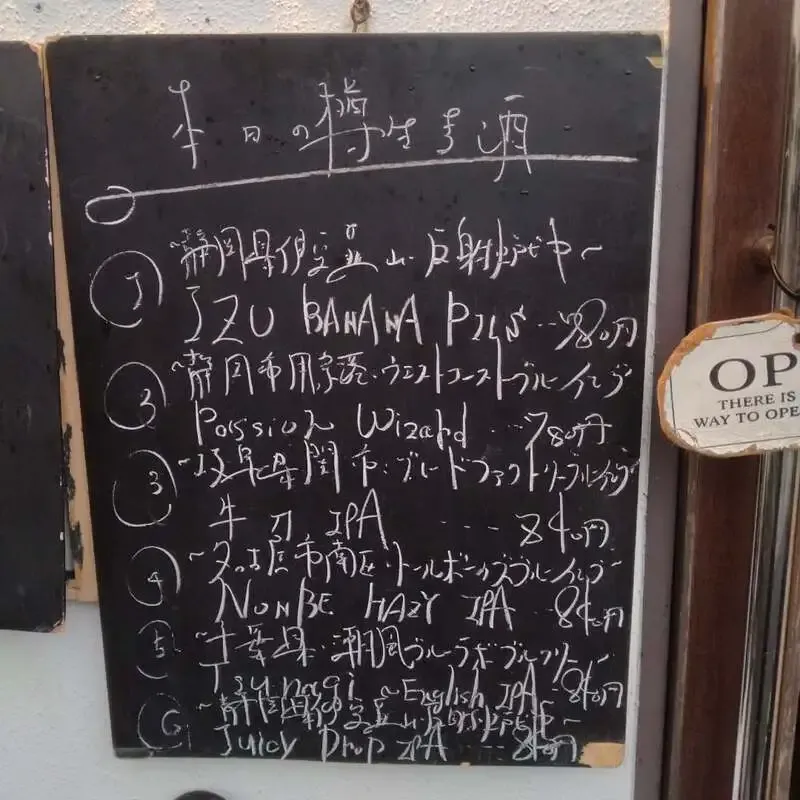 本日の樽生麦酒
① ~静岡県伊豆韮山・反射炉ビヤ~
IZU BANANA PILS … 780円
② ~静岡市用宗・ウエストコーストブルーイング
Passion Wizard … 780円
③ ~岐阜県関市・ブレードファクトリーブルーイング
牛刀 IPA … 840円
④ ~名古屋市南区・トールボーイズブルーイング~
NONBE HAZY IPA … 840円
⑤ ~千葉県・潮風ブルーラボ
Tsunagi ~English IPA 840円
⑥ ~静岡県伊豆韮山・反射炉ビヤ~
Juicy Drop IPA … 840円
OP
THERE IS
WAY TO OPE